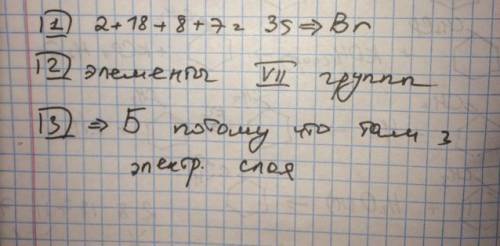 |1| 2+18+8+7= 35 ⇒ Br
|2| элементы VII групп
|3| ⇒ Б потому что там 3
электр. слоя